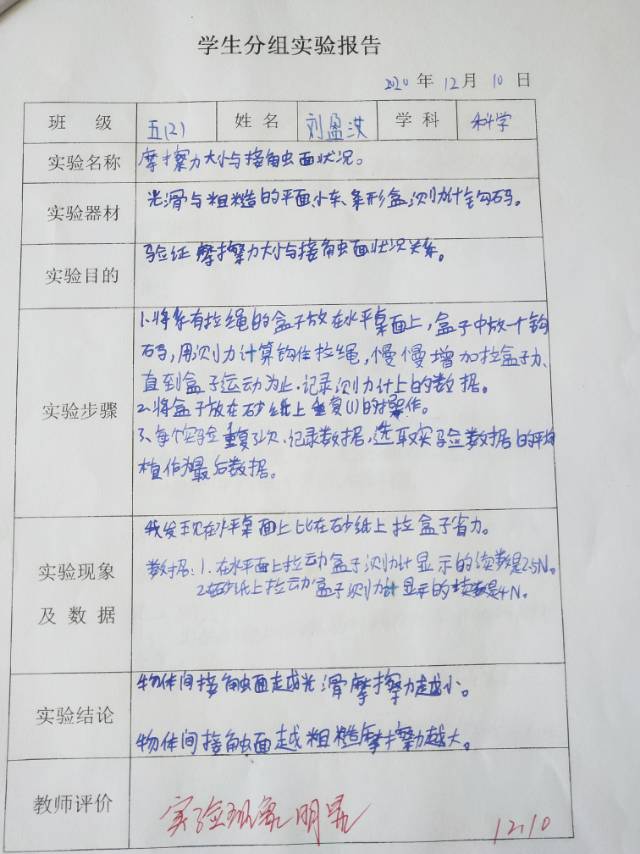 学生分组实验报告
2020 年 12 月 10 日
班 级 五(2) 姓 名 刘盈汝 学 科 科学
实验名称 摩擦力大小与接触面状况。
实验器材 光滑与粗糙的平面、小车、条形盒、测力计、钩码。
实验目的 验证摩擦力大小与接触面状况关系。
实验步骤
1.将系有拉绳的盒子放在水平桌面上,盒子中放一个钩
码,用测力计算钩住拉绳,慢慢增加拉盒子力、
直到盒子运动为止、记录测力计上的数据。
2.将盒子放在砂纸上重复(1)的操作。
3、每个实验重复3次、记录数据,选取实验数据的平均
值作为最后数据。
实验现象
及 数 据
我发现在水平桌面上比在砂纸上拉盒子省力。
数据:1.在水平面上拉动盒子测力计显示的读数是2.5N。
2.在砂纸上拉动盒子测力计显示的读数是4N。
实验结论
物体间接触面越光滑摩擦力越小。
物体间接触面越粗糙摩擦力越大。
教师评价 实验现象明显 12.10